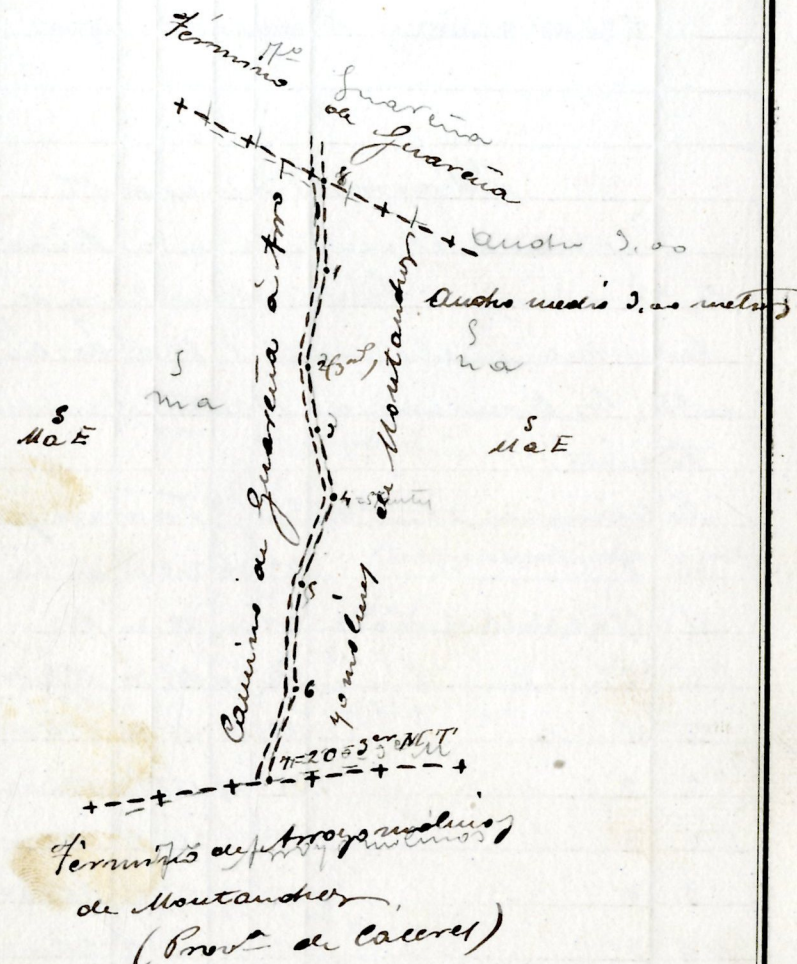 Término
de Guareña
Tº
Guareña
8
ancho 3.00
Ancho medio 3.00 metros
1
2
3
4
5
6
S
Ma E
S
Ma E
Camino de Guareña á Arro
yomolinos
de Montanchez
7=20
3er M T
Término de Arroyomolinos
de Montanchez
(Provª de Cáceres)